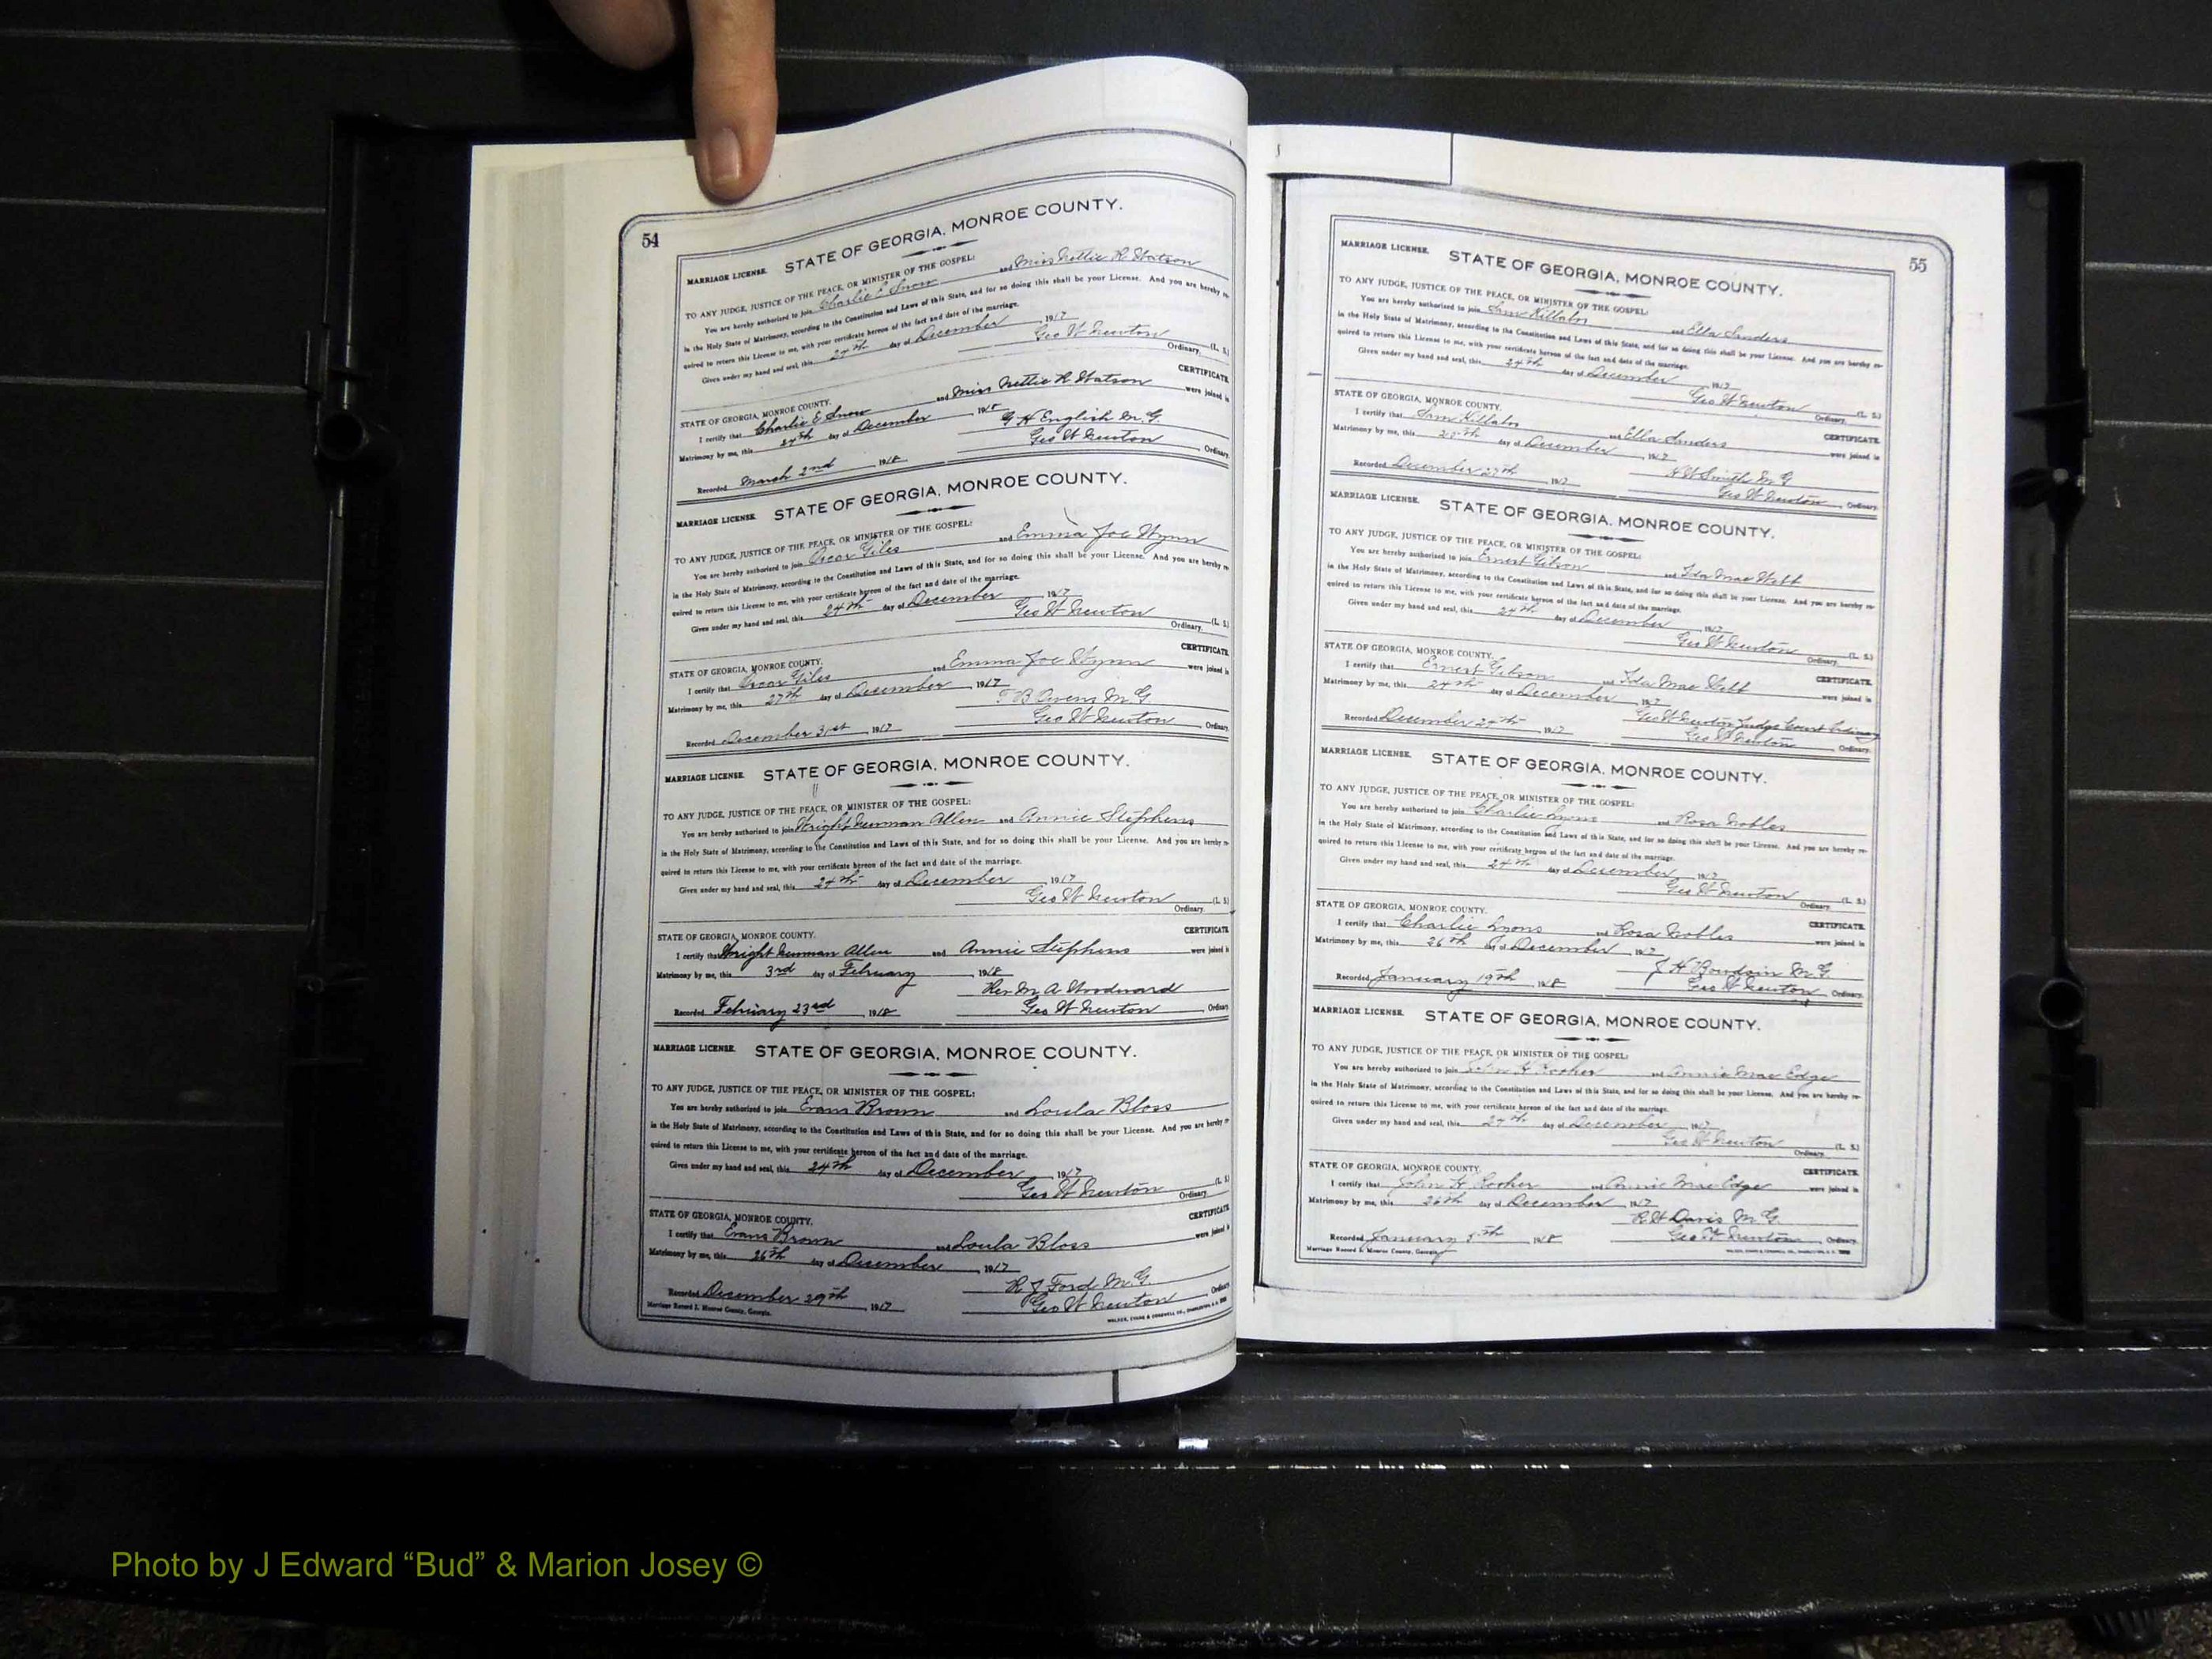 54
MARRIAGE LICENSE. STATE OF GEORGIA, MONROE COUNTY.
TO ANY JUDGE, JUSTICE OF THE PEACE, OR MINISTER OF THE GOSPEL:
You are hereby authorized to join Charlie E Snow and Miss Nettie R Watson
in the Holy State of Matrimony, according to the Constitution and Laws of this State, and for so doing this shall be your License. And you are hereby re-
quired to return this License to me, with your certificate hereon of the fact and date of the marriage.
Given under my hand and seal, this 24th day of December, 1917
Geo W Newton (L. S.)
Ordinary.
STATE OF GEORGIA, MONROE COUNTY. CERTIFICATE
I certify that Charlie E Snow and Miss Nettie R Watson were joined in
Matrimony by me, this 24th day of December, 1918
G H English M.G.
Recorded March 2nd, 1918 Geo W Newton, Ordinary.
MARRIAGE LICENSE. STATE OF GEORGIA, MONROE COUNTY.
TO ANY JUDGE, JUSTICE OF THE PEACE, OR MINISTER OF THE GOSPEL:
You are hereby authorized to join Oscar Giles and Emma Joe Wynn
in the Holy State of Matrimony, according to the Constitution and Laws of this State, and for so doing this shall be your License. And you are hereby re-
quired to return this License to me, with your certificate hereon of the fact and date of the marriage.
Given under my hand and seal, this 24th day of December, 1917
Geo W Newton (L. S.)
Ordinary.
STATE OF GEORGIA, MONROE COUNTY. CERTIFICATE
I certify that Oscar Giles and Emma Joe Wynn were joined in
Matrimony by me, this 27th day of December, 1917
B Owens M G
Recorded December 31st, 1917 Geo W Newton, Ordinary.
MARRIAGE LICENSE. STATE OF GEORGIA, MONROE COUNTY.
TO ANY JUDGE, JUSTICE OF THE PEACE, OR MINISTER OF THE GOSPEL:
You are hereby authorized to join Wright Newman Allen and Annie Stephens
in the Holy State of Matrimony, according to the Constitution and Laws of this State, and for so doing this shall be your License. And you are hereby re-
quired to return this License to me, with your certificate hereon of the fact and date of the marriage.
Given under my hand and seal, this 24th day of December, 1917
Geo W Newton (L. S.)
Ordinary.
STATE OF GEORGIA, MONROE COUNTY. CERTIFICATE
I certify that Wright Newman Allen and Annie Stephens were joined in
Matrimony by me, this 3rd day of February, 1918
Rev M A Woodward
Recorded February 23rd, 1918 Geo W Newton, Ordinary.
MARRIAGE LICENSE. STATE OF GEORGIA, MONROE COUNTY.
TO ANY JUDGE, JUSTICE OF THE PEACE, OR MINISTER OF THE GOSPEL:
You are hereby authorized to join Evans Brown and Loula Bloss
in the Holy State of Matrimony, according to the Constitution and Laws of this State, and for so doing this shall be your License. And you are hereby re-
quired to return this License to me, with your certificate hereon of the fact and date of the marriage.
Given under my hand and seal, this 24th day of December, 1917
Geo W Newton (L. S.)
Ordinary.
STATE OF GEORGIA, MONROE COUNTY. CERTIFICATE
I certify that Evans Brown and Loula Bloss were joined in
Matrimony by me, this 26th day of December, 1917
R J Ford M.G.
Recorded December 29th, 1917 Geo W Newton, Ordinary.
Marriage Record I. Monroe County, Georgia.
55
MARRIAGE LICENSE. STATE OF GEORGIA, MONROE COUNTY.
TO ANY JUDGE, JUSTICE OF THE PEACE, OR MINISTER OF THE GOSPEL:
You are hereby authorized to join Sam Killabs and Ella Sanders
in the Holy State of Matrimony, according to the Constitution and Laws of this State, and for so doing this shall be your License. And you are hereby re-
quired to return this License to me, with your certificate hereon of the fact and date of the marriage.
Given under my hand and seal, this 24th day of December, 1917
Geo W Newton (L. S.)
Ordinary.
STATE OF GEORGIA, MONROE COUNTY. CERTIFICATE
I certify that Sam Killabs and Ella Sanders were joined in
Matrimony by me, this day of December, 1917
Smith M G
Recorded December 27th, 1917 Geo W Newton, Ordinary.
MARRIAGE LICENSE. STATE OF GEORGIA, MONROE COUNTY.
TO ANY JUDGE, JUSTICE OF THE PEACE, OR MINISTER OF THE GOSPEL:
You are hereby authorized to join Ernest Gibson and Ida Mae Webb
in the Holy State of Matrimony, according to the Constitution and Laws of this State, and for so doing this shall be your License. And you are hereby re-
quired to return this License to me, with your certificate hereon of the fact and date of the marriage.
Given under my hand and seal, this 24th day of December, 1917
Geo W Newton (L. S.)
Ordinary.
STATE OF GEORGIA, MONROE COUNTY. CERTIFICATE
I certify that Ernest Gibson and Ida Mae Webb were joined in
Matrimony by me, this 24th day of December, 1917
Geo W Newton Judge Court Ordinary
Recorded December 24th, 1917 Geo W Newton, Ordinary.
MARRIAGE LICENSE. STATE OF GEORGIA, MONROE COUNTY.
TO ANY JUDGE, JUSTICE OF THE PEACE, OR MINISTER OF THE GOSPEL:
You are hereby authorized to join Charlie Lyons and Rosa Nobles
in the Holy State of Matrimony, according to the Constitution and Laws of this State, and for so doing this shall be your License. And you are hereby re-
quired to return this License to me, with your certificate hereon of the fact and date of the marriage.
Given under my hand and seal, this 24th day of December, 1917
Geo W Newton (L. S.)
Ordinary.
STATE OF GEORGIA, MONROE COUNTY. CERTIFICATE
I certify that Charlie Lyons and Rosa Nobles were joined in
Matrimony by me, this 26th day of December, 1917
J H Bowdoin M.G.
Recorded January 19th, 1918 Geo W Newton, Ordinary.
MARRIAGE LICENSE. STATE OF GEORGIA, MONROE COUNTY.
TO ANY JUDGE, JUSTICE OF THE PEACE, OR MINISTER OF THE GOSPEL:
You are hereby authorized to join John H Rosher and Annie Mae Edge
in the Holy State of Matrimony, according to the Constitution and Laws of this State, and for so doing this shall be your License. And you are hereby re-
quired to return this License to me, with your certificate hereon of the fact and date of the marriage.
Given under my hand and seal, this 24th day of December, 1917
Geo W Newton (L. S.)
Ordinary.
STATE OF GEORGIA, MONROE COUNTY. CERTIFICATE
I certify that John H Rosher and Annie Mae Edge were joined in
Matrimony by me, this 26th day of December, 1917
R H Davis M.G.
Recorded January 5th, 1918 Geo W Newton, Ordinary.
Marriage Record I. Monroe County, Georgia
Photo by J Edward “Bud” & Marion Josey ©